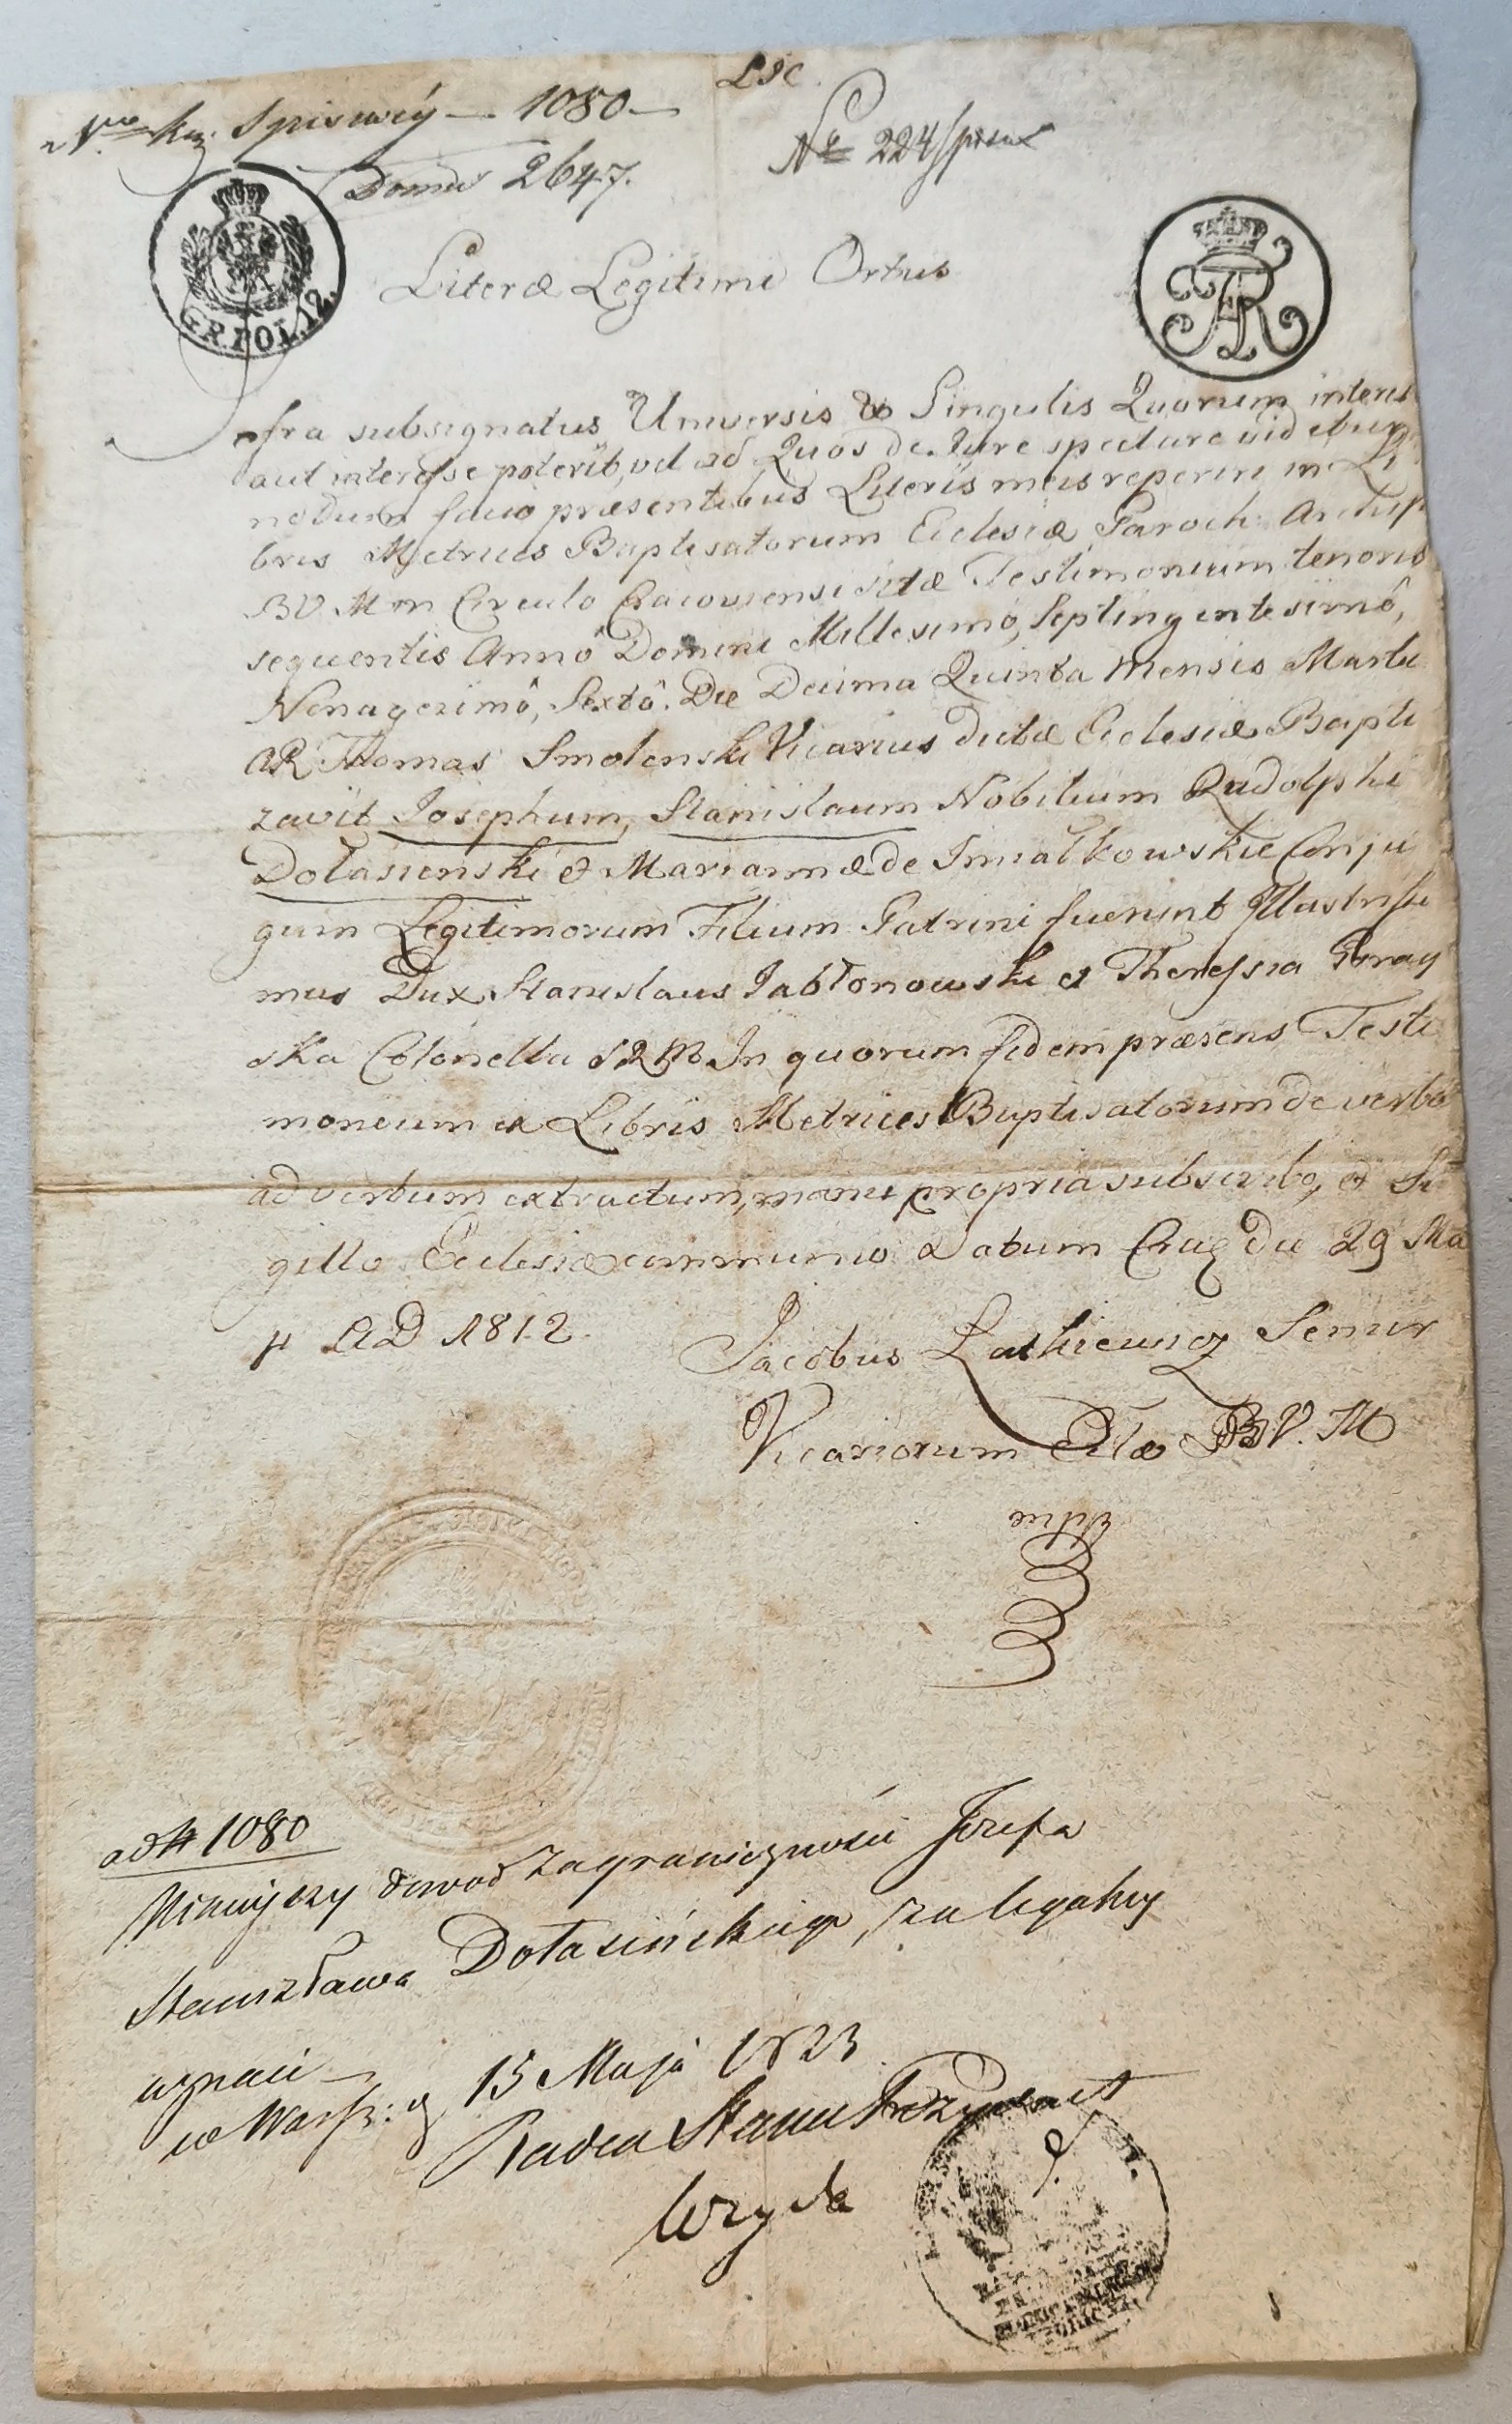 LSC.
Nro Xg. Spisowéy — 1080 —
Domus 2647.
No 224/
GR POL 12.
FAR
Literæ Legitimi Ortus
Infra subsignatus Universis & Singulis Quorum interest
aut interesse poterit, vel ad Quos de Jure spectare videbur
notum facio præsentibus Literis meis reperiri in Li
bris Metrices Baptisatorum Eclesiæ Paroch: Archip
BVM in Circulo Cracoviensi sitæ Testimonium tenoris
sequentis Annô Domini Millesimô, Septingentesimô,
Nonagesimô, Sextô. Die Decima Quinta Mensis Martii
AR Thomas Smolenski Vicarius dictæ Eclesiæ Bapti
zavit Josephum, Stanislaum Nobilium Rudolphi
Dołasienski & Mariannæ de Smiałkowskie Conju
gum Legitimorum Filium Patrini fuerunt Illustrissi
mus Dux Stanislaus Jabłonowski et Theressia
ska Colonella SRM In quorum fidem præsens Testi
monium ex Libris Metrices Baptisatorum de verbo
ad verbum extractum, manu propria subscribo, et Si
gillo Eclesiæ communio Datum Crac die 29 Ma
ji AD 1812.
Jacobus Laskiewicz Senior
Vicariorum Eclæ BV.M
mpp
ad N 1080
Ninieyszy dowod zagraniczności Józefa
Stanisława Dołasińskiego, za legalny
uznaię —
w Warsz: d 15 Maja 1823
Radca Stanu Prezydent